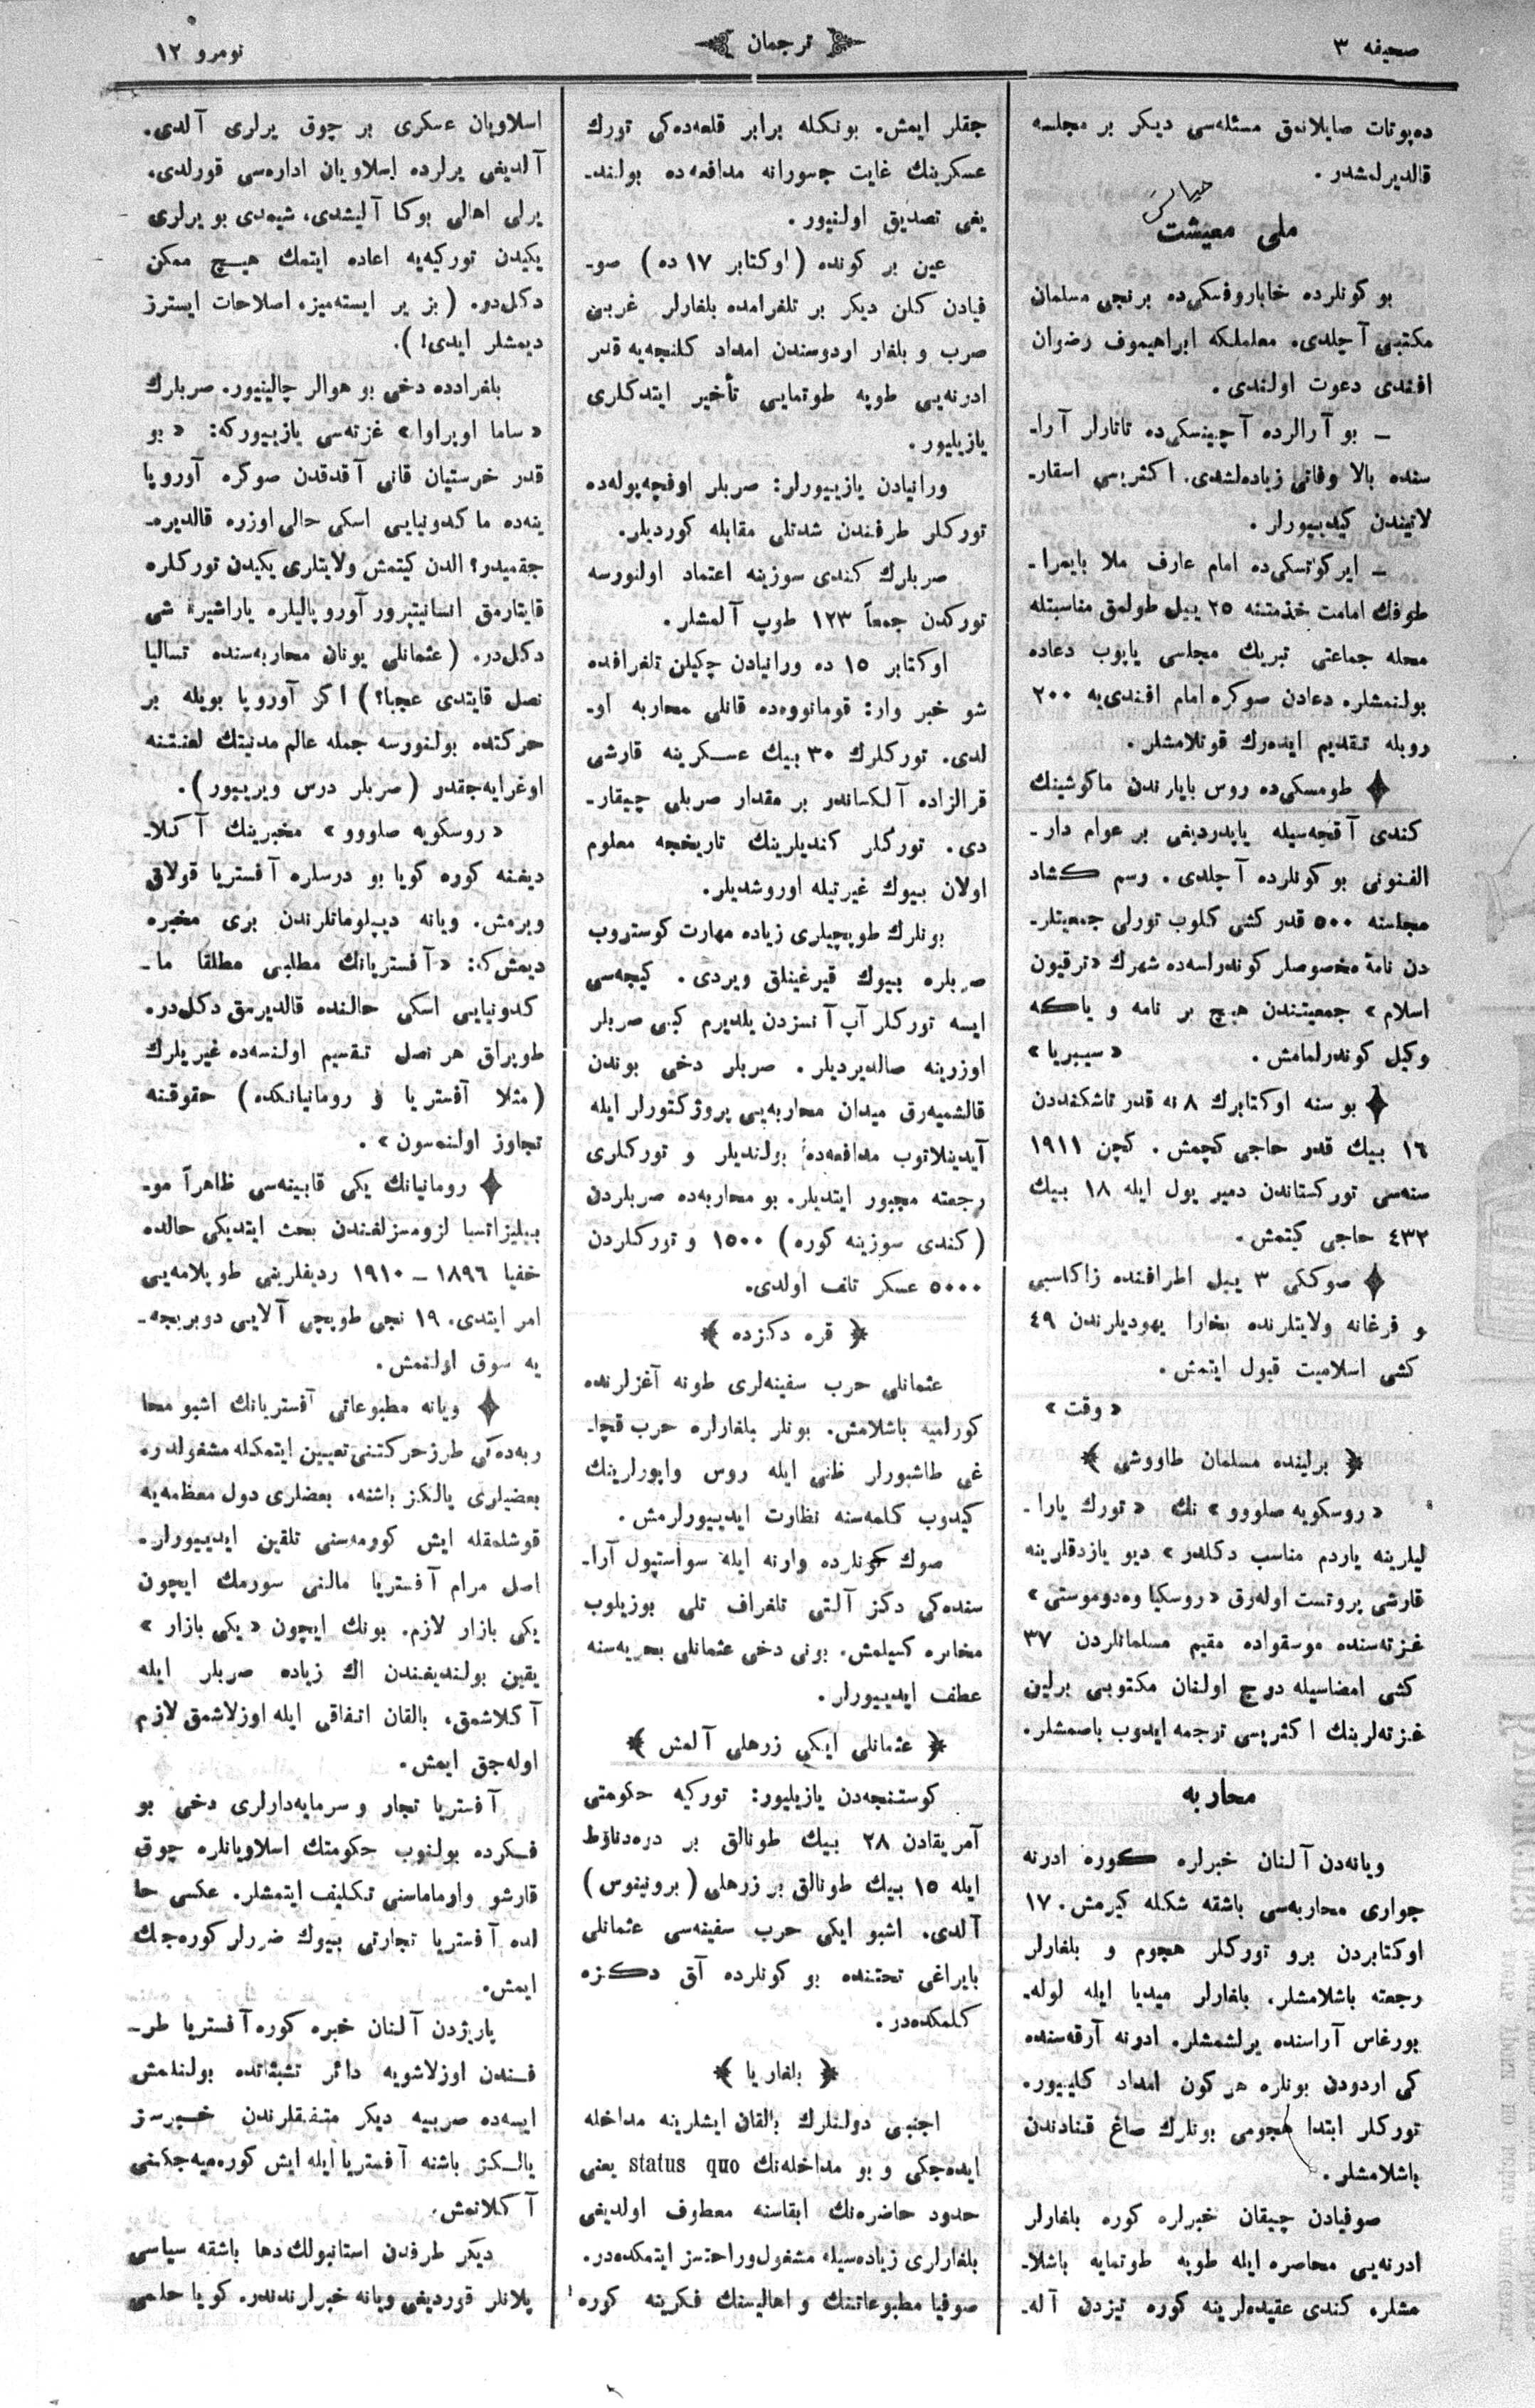 صحیفه ٣
ترجمان
نومرو ١٢
دەپوتات صایلانمق مسئله‌سی دیكر بر مجلسه
قالدیرلمشدر .
ملی معیشت
بو كونلرده خاباروفسكی‌ده برنجی مسلمان
مكتبی آچلدی. معلملكه ابراهیموف رضوان
افندی دعوت اولندی .
ــ بو آرالرده آچینسكی‌ده تاتارلر آرا-
سنده بالا وفاتی زیاده‌لشدی. اكثریسی اسقار-
لاتیندن كیدییورلر .
ــ ایركوتسكی‌ده امام عارف ملا بایمرا-
طوفك امامت خذمتنه ٢٥ ییل طولمق مناسبتله
محله جماعتی تبریك مجلسی یاپوب دعاده
بولنمشلر. دعادن صوكره امام افندی‌یه ٢٠٠
روبله تقدیم ایده‌رك قوتلامشلر .
طومسكی‌ده روس بایارندن ماكوشینك
كندی آقچه‌سیله یاپدردیغی بر عوام دار-
الفنونی بو كونلرده آچلدی . رسم كشاد
مجلسنه ٥٠٠ قدر كشی كلوب تورلی جمعیتلر-
دن نامهٔ مخصوصلر كوندرلسه‌ده شهرك « ترقیون
اسلام » جمعیتندن هیچ بر نامه و یاكه
وكیل كوندرلمامش . « سیبریا »
بو سنه اوكتابرك ٨ نه قدر تاشكنددن
١٦ بیك قدر حاجی كچمش . كچن ١٩١١
سنه‌سی توركستاندن دمیر یول ایله ١٨ بیك
٤٣٢ حاجی كیتمش .
صوككی ٣ ییل اطرافنده زاكاسپی
و فرغانه ولایتلرنده بخارا یهودیلرندن ٤٩
كشی اسلامیت قبول ایتمش .
« وقت »
برلینده مسلمان طاووشی
« روسكویه صلووو » نك « تورك یارا-
لیلرینه یاردم مناسب دكلدر » دیو یازدقلرینه
قارشی پروتست اوله‌رق « روسكیا وەدوموستی »
غزته‌سنده موسقواده مقیم مسلمانلردن ٣٧
كشی امضاسیله درج اولنان مكتوبی برلین
غزته‌لرینك اكثریسی ترجمه ایدوب باصمشلر .
محاربه
ویانه‌دن آلنان خبرلره كوره ادرنه
جواری محاربه‌سی باشقه شكله كیرمش . ١٧
اوكتابردن برو توركلر هجوم و بلغارلر
رجعته باشلامشلر. بلغارلر میدیا ایله لوله-
بورغاس آراسنده یرلشمشلر. ادرنه آرقه‌سنده
كی اردودن بونلره هر كون امداد كلییور.
توركلر ابتدا هجومی بونلرك صاغ قنادندن
باشلامشلر .
صوفیادن چیقان خبرلره كوره بلغارلر
ادرنه‌یی محاصره ایله طوپه طوتمایه باشلا-
مشلر. كندی عقیده‌لرینه كوره تیزدن آله-
جقلر ایمش. بونكله برابر قلعه‌ده‌كی تورك
عسكرینك غایت جسورانه مدافعه‌ده بولند-
یغی تصدیق اولنیور .
عین بر كونده (اوكتابر ١٧ ده) صو-
فیادن كلن دیكر بر تلغرامده بلغارلر غربی
صرب و بلغار اردوسندن امداد كلنجه‌یه قدر
ادرنه‌یی طوپه طوتمایی تأخیر ایتدكلری
یازیلیور .
ورانیادن یازییورلر: صربلر اوفچه‌پوله‌ده
توركلر طرفندن شدتلی مقابله كوردیلر.
صربلرك كندی سوزینه اعتماد اولنورسه
توركدن جمعاً ١٢٣ طوپ آلمشلر .
اوكتابر ١٥ ده ورانیادن چكیلن تلغرافده
شو خبر وار: قومانووه‌ده قانلی محاربه او-
لدی. توركلرك ٣٠ بیك عسكرینه قارشی
قرالزاده آلكساندر بر مقدار صربلی چیقار-
دی. توركلر كندیلرینك تاریخجه معلوم
اولان بیوك غیرتیله اوروشدیلر.
بونلرك طوپچیلری زیاده مهارت كوستروب
صربلره بیوك قیرغینلق ویردی . كیچه‌سی
ایسه توركلر آپ آنسزدن یلدیرم كبی صربلر
اوزرینه صالدیردیلر . صربلر دخی بوندن
قالشمیه‌رق میدان محاربه‌یی پروژكتورلر ایله
آیدینلاتوب مدافعه‌ده بولندیلر و توركلری
رجعته مجبور ایتدیلر. بو محاربه‌ده صربلردن
(كندی سوزینه كوره) ١٥٠٠ و توركلردن
٥٠٠٠ عسكر تلف اولدی.
قره دكزده
عثمانلی حرب سفینه‌لری طونه آغزلرنده
كورلمیه باشلامش. بونلر بلغارلره حرب قچا-
غی طاشیورلر ظنی ایله روس واپورلرینك
كیدوب كلمه‌سنه نظارت ایدییورلرمش .
صوك كونلرده وارنه ایله سواستپول آرا-
سنده‌كی دكز آلتی تلغراف تلی بوزیلوب
مخابره كسیلمش. بونی دخی عثمانلی بحریه‌سنه
عطف ایدییورلر .
عثمانلی ایكی زرهلی آلمش
كوستنجه‌دن یازیلیور: توركیه حكومتی
آمریقادن ٢٨ بیك طونالق بر دره‌دناوط
ایله ١٥ بیك طونالق بر زرهلی (برونینوس)
آلدی. اشبو ایكی حرب سفینه‌سی عثمانلی
بایراغی تحتنده بو كونلرده آق دكزه
كلمكده‌در .
بلغاریا
اجنبی دولتلرك بالقان ایشلرینه مداخله
ایده‌جكی و بو مداخله‌نك status quo یعنی
حدود حاضره‌نك ابقاسنه معطوف اولدیغی
بلغارلری زیاده‌سیله مشغول و راحتسز ایتمكده‌در.
صوفیا مطبوعاتنك و اهالیسنك فكرینه كوره
اسلاویان عسكری بر چوق یرلری آلدی.
آلدیغی یرلرده اسلاویان اداره‌سی قورلدی.
یرلی اهالی بوكا آلیشدی. شیمدی بو یرلری
یكیدن توركیه‌یه اعاده ایتمك هیچ ممكن
دكل‌در. (بز یر ایسته‌میز. اصلاحات ایسترز
دیمشلر ایدی!).
بلغرادده دخی بو هوالر چالینیور. صربلرك
« ساما اوپراوا » غزته‌سی یازییوركه: « بو
قدر خرستیان قانی آقدقدن صوكره آوروپا
ینه‌ده ماكدونیایی اسكی حالی اوزره قالدیره-
جقمیدر؟ الدن كیتمش ولایتلری یكیدن توركلره
قایتارمق انسانیتپرور آوروپالیلره یاراشیر شی
دكل‌در. (عثمانلی یونان محاربه‌سنده تسالیا
نصل قایتدی عجبا؟) اكر آوروپا بویله بر
حركتده بولنورسه جمله عالم مدنیتك لعنتنه
اوغرایه‌جقدر (صربلر درس ویرییور).
« روسكویه صلووو » مخبرینك آكلا-
دیغنه كوره كویا بو درسلره آفستریا قولاق
ویرمش. ویانه دیپلوماتلرندن بری مخبره
دیمش‌كه: « آفستریانك مطلبی مطلقا ما-
كدونیایی اسكی حالنده قالدیرمق دكل‌در.
طوپراق هر نصل تقسیم اولنسه‌ده غیریلرك
(مثلا آفستریا و رومانیانكده) حقوقنه
تجاوز اولنه‌سون » .
رومانیانك یكی قابینه‌سی ظاهراً مو-
بیلیزاتسیا لزومسزلغندن بحث ایتدیكی حالده
خفیا ١٨٩٦ ــ ١٩١٠ ردیفلرینی طوپلامه‌یی
امر ایتدی. ١٩ نجی طوپچی آلایی دوبریجه-
یه سوق اولنمش.
ویانه مطبوعاتی آفستریانك اشبو محا
ربه‌ده‌كی طرز حركتنی تعیین ایتمكله مشغولدر.
بعضیلری یالكز باشنه، بعضلری دول معظمه‌یه
قوشلمقله ایش كورمه‌سنی تلقین ایدییورلر.
اصل مرام آفستریا مالنی سورمك ایچون
یكی بازار لازم. بونك ایچون « یكی بازار »
یقین بولندیغندن اك زیاده صربلر ایله
آكلاشمق، بالقان اتفاقی ایله اوزلاشمق لازم
اوله‌جق ایمش.
آفستریا تجار و سرمایه‌دارلری دخی بو
فكرده بولنوب حكومتك اسلاویانلره چوق
قارشو وارماماسنی تكلیف ایتمشلر. عكسی حا
لده آفستریا تجارتی بیوك ضررلر كوره‌جك
ایمش.
پاریژدن آلنان خبره كوره آفستریا طر-
فندن اوزلاشویه دائر تشبثاتده بولنلمش
ایسه‌ده صربیه دیكر متفقلرندن خبرسز
یالكز باشنه آفستریا ایله ایش كوره‌میه‌جكنی
آكلاتمش.
دیكر طرفدن استانبولك دها باشقه سیاسی
پلانلر قوردیغی ویانه خبرلرندندر. كویا حلمی